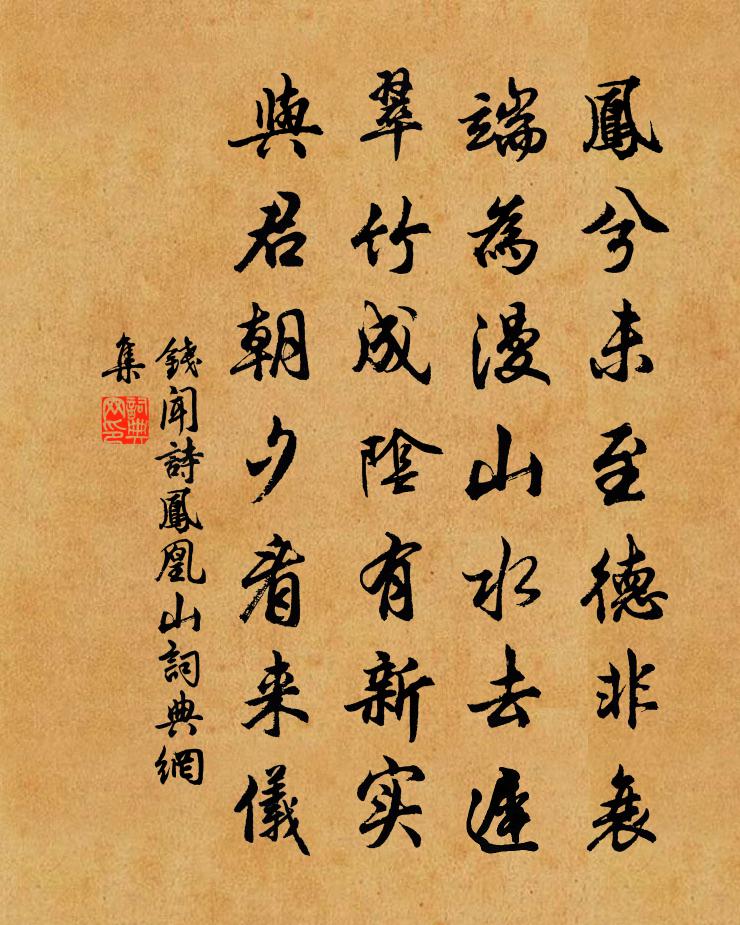 鳳兮未至德非衰
端為漫山水去遲
翠竹成陰有新实
與君朝夕看来儀
錢聞詩鳳凰山詞典網
集
詞典網印